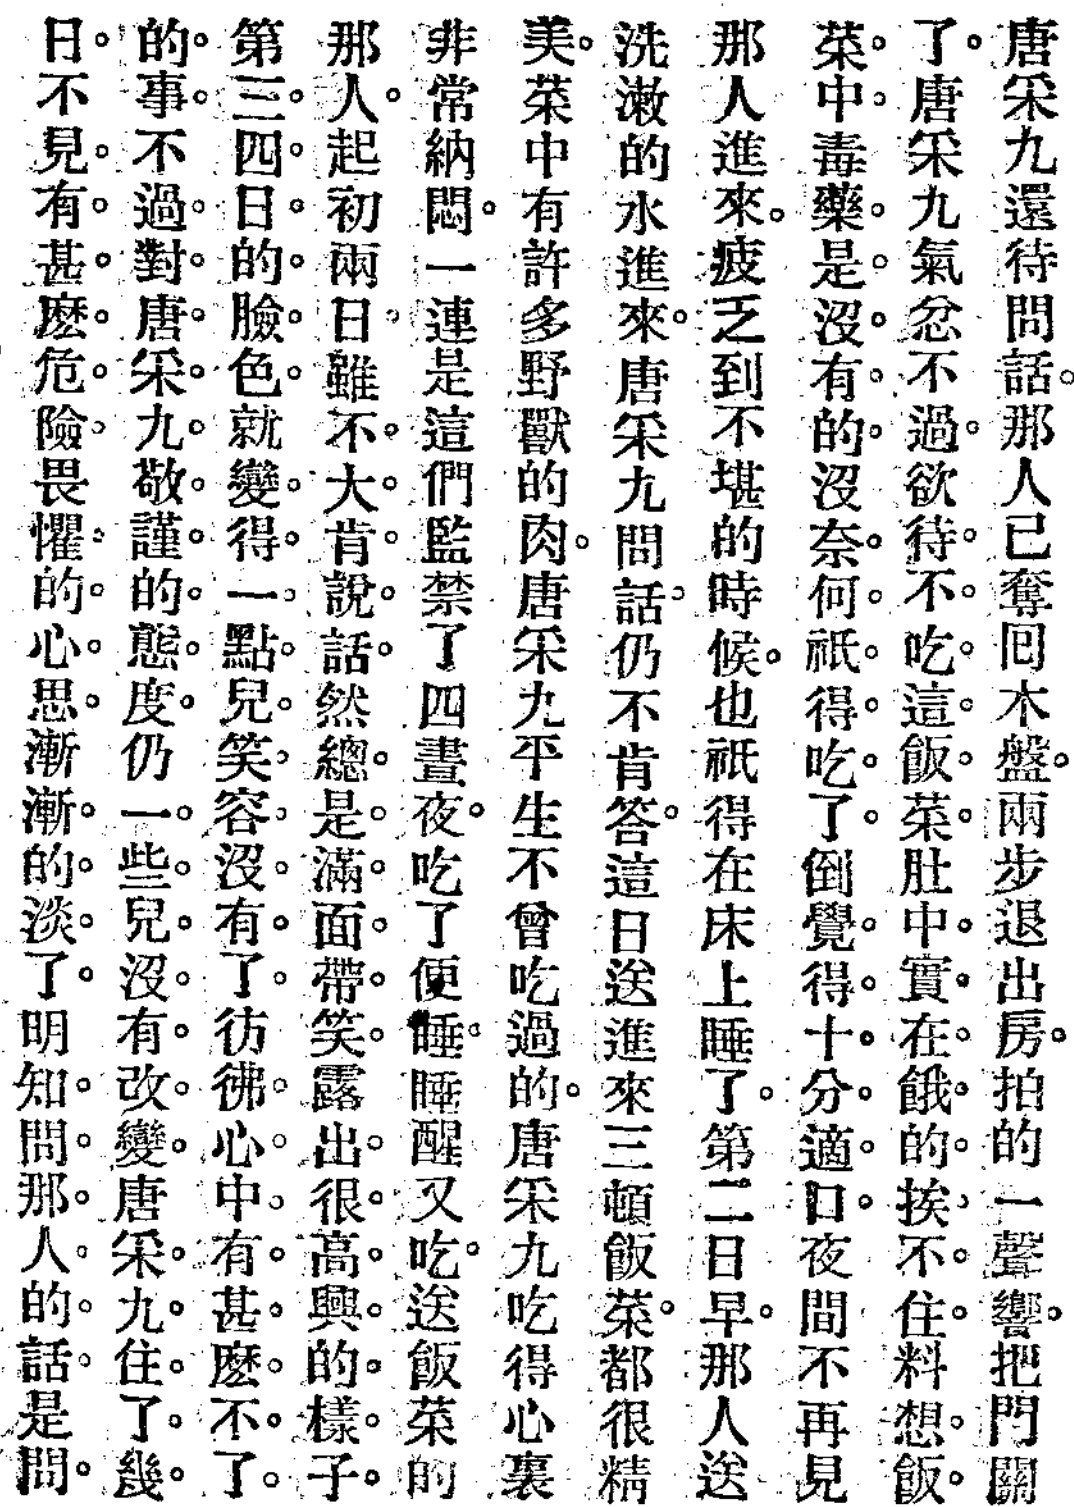 唐采九還待問話。那人已奪囘木盤。兩步退出房。拍的一聲響。把門關
了。唐采九氣忿不過。欲待。不。吃。這。飯。菜。肚中。實。在。餓。的。挨。不。住。料想。飯。
菜。中。毒藥。是。沒。有。的。沒奈。何。祇。得。吃。了。倒覺。得。十。分。適。口。夜間不再見
那人進來。疲乏到不堪的時候。也祇得在床上睡了。第二日早。那人送
洗漱的水進來。唐采九問話。仍不肯答。這日送進來三頓飯菜。都很精
美。菜中有許多野獸的肉。唐采九平生不曾吃過的。唐采九吃得心裏
非常納悶。一連是這們監禁了四晝夜。吃了便睡。睡醒又吃。送飯菜的
那人。起初兩日。雖不。大。肯。說。話。然總。是。滿。面帶。笑。露出。很。高。興。的。樣。子。
第三。四。日。的。臉。色。就變。得。一。點。兒。笑。容。沒。有。了。彷彿。心。中。有。甚。麼。不。了。
的。事。不過。對。唐。采。九。敬。謹。的。態。度。仍一。些。兒。沒。有。改。變。唐采。九。住。了。幾。
日。不見。有。甚。麼。危。險。畏懼。的。心。思。漸漸。的。淡。了。明知。問。那。人。的。話。是問。